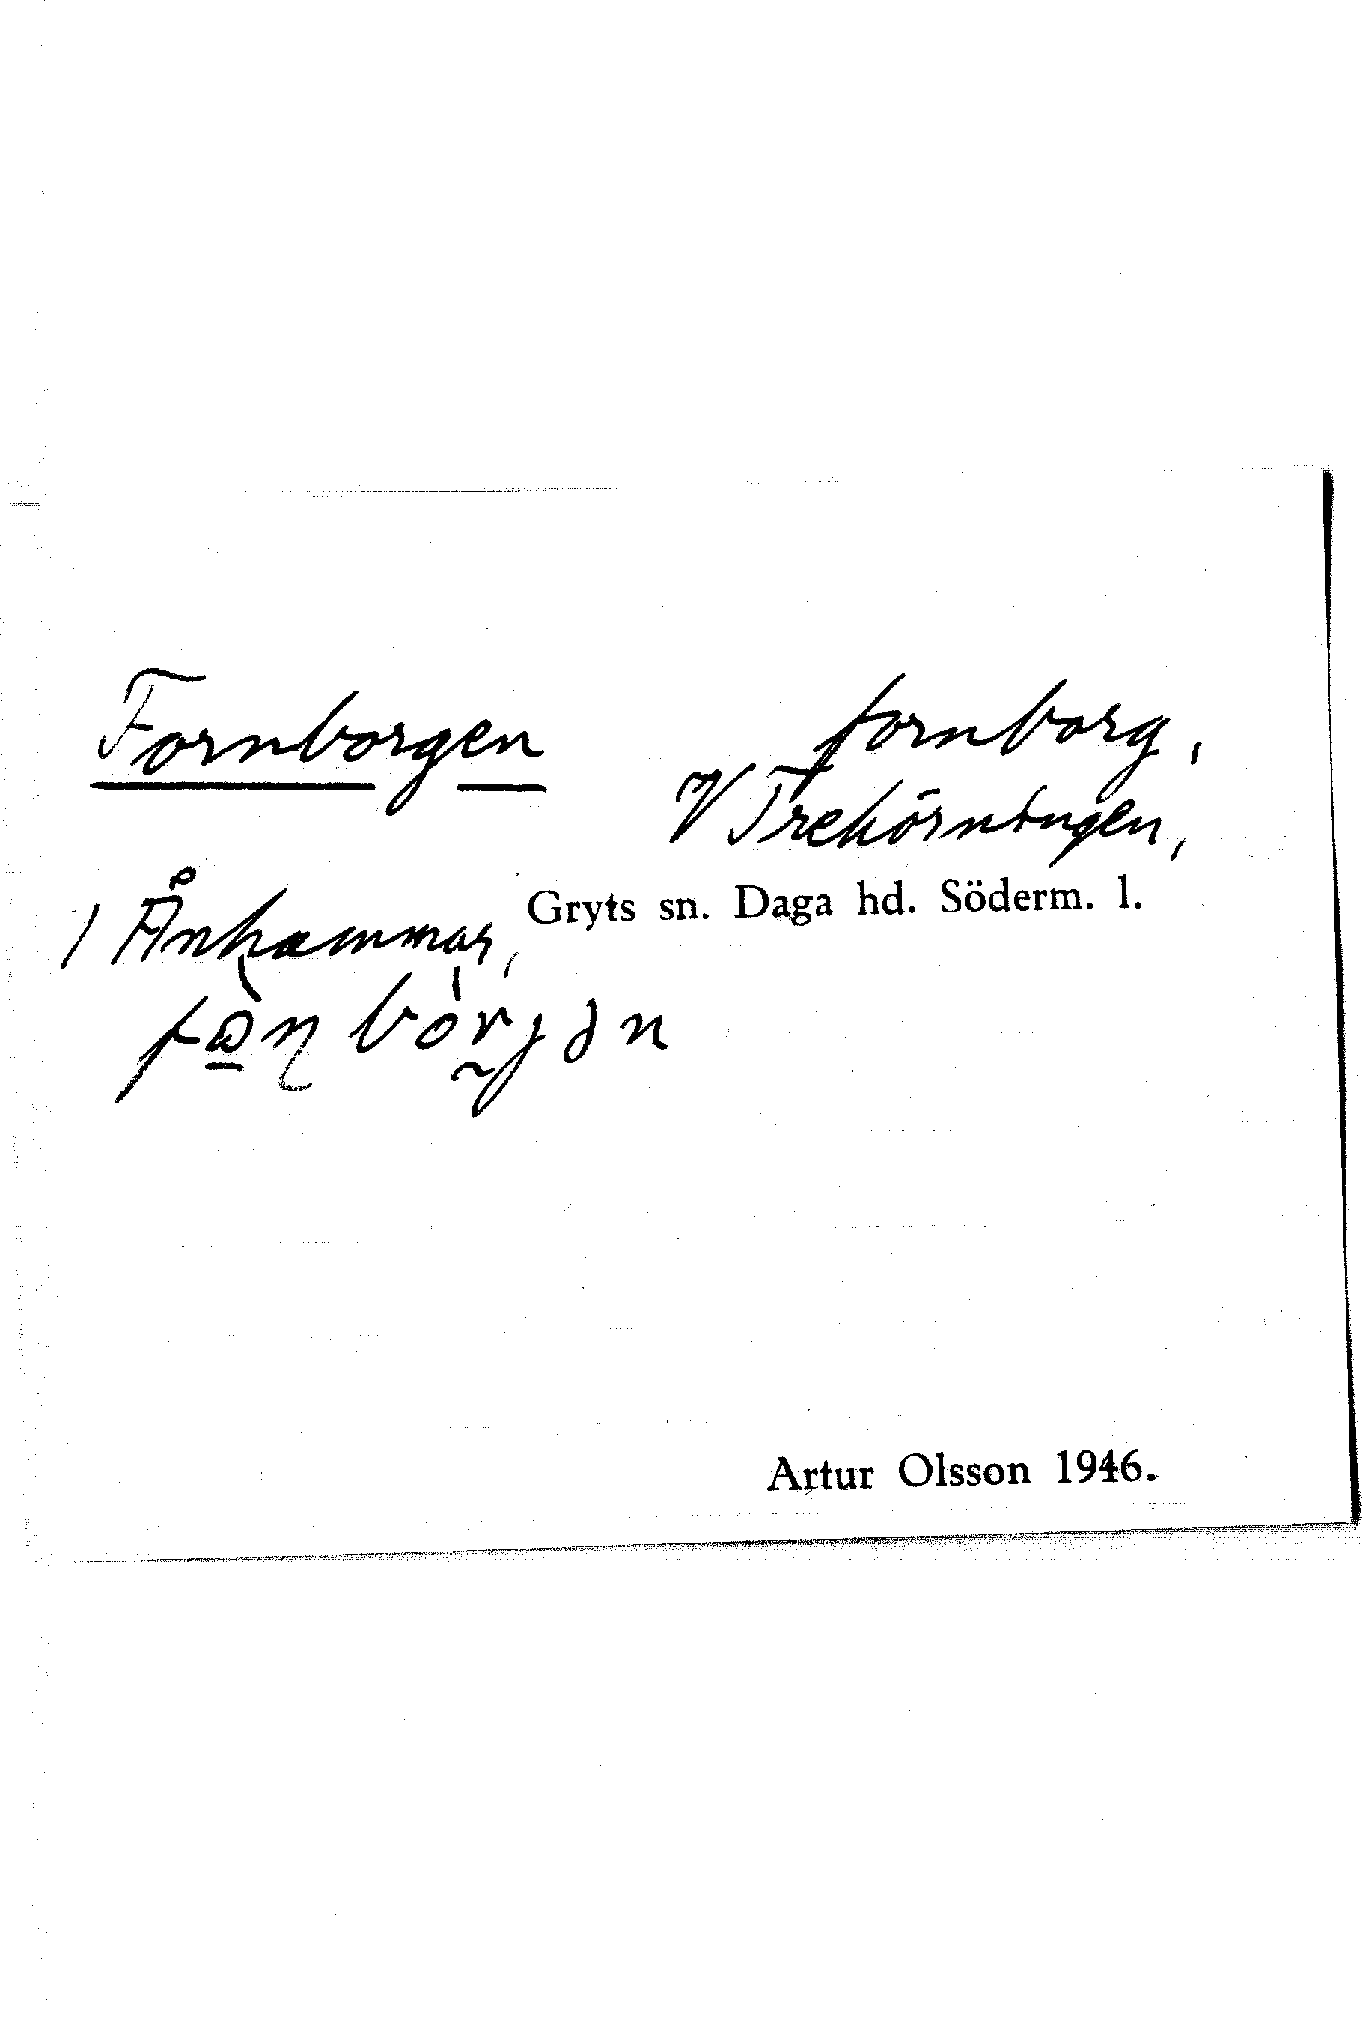 Fornborgen fornborg,
V Trehörningen,
/ Ånhammar, Gryts sn. Daga hd. Söderm. l.
Artur Olsson 1946.